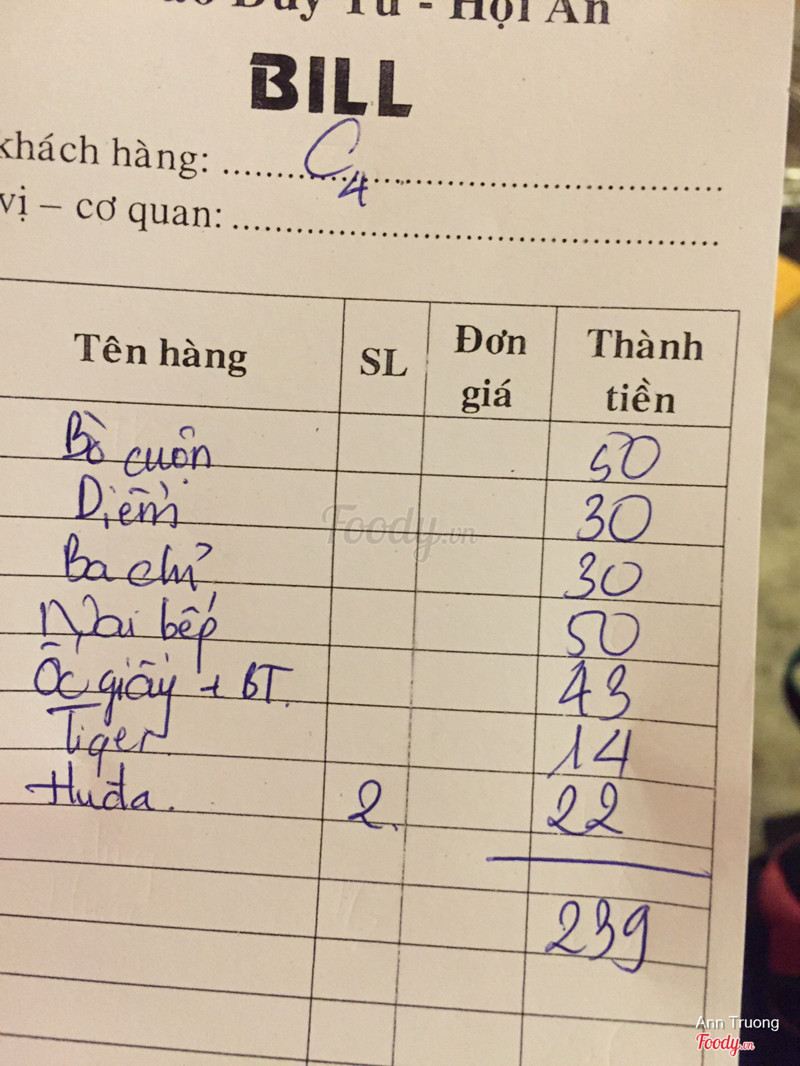 Duy Từ - Hội An
BILL
khách hàng: C4
vị – cơ quan:
Tên hàng SL Đơn giá Thành tiền
Bò cuộn 50
Diềm 30
Ba chỉ 30
Nai bếp 50
Ốc giấy + BT. 43
Tiger 14
Huda. 2. 22
239
Foody.vn
Ann Truong
Foody.vn